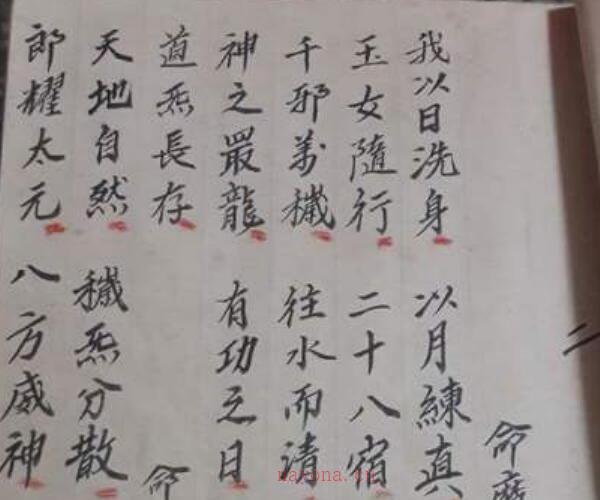 二
命
我以日洗身 以月練真
玉女隨行 二十八宿
千邪萬穢 往水而清
神之最龍 有功之日
道炁長存 命
天地自然 穢炁分散
郎耀太元 八方威神
nayona.cn